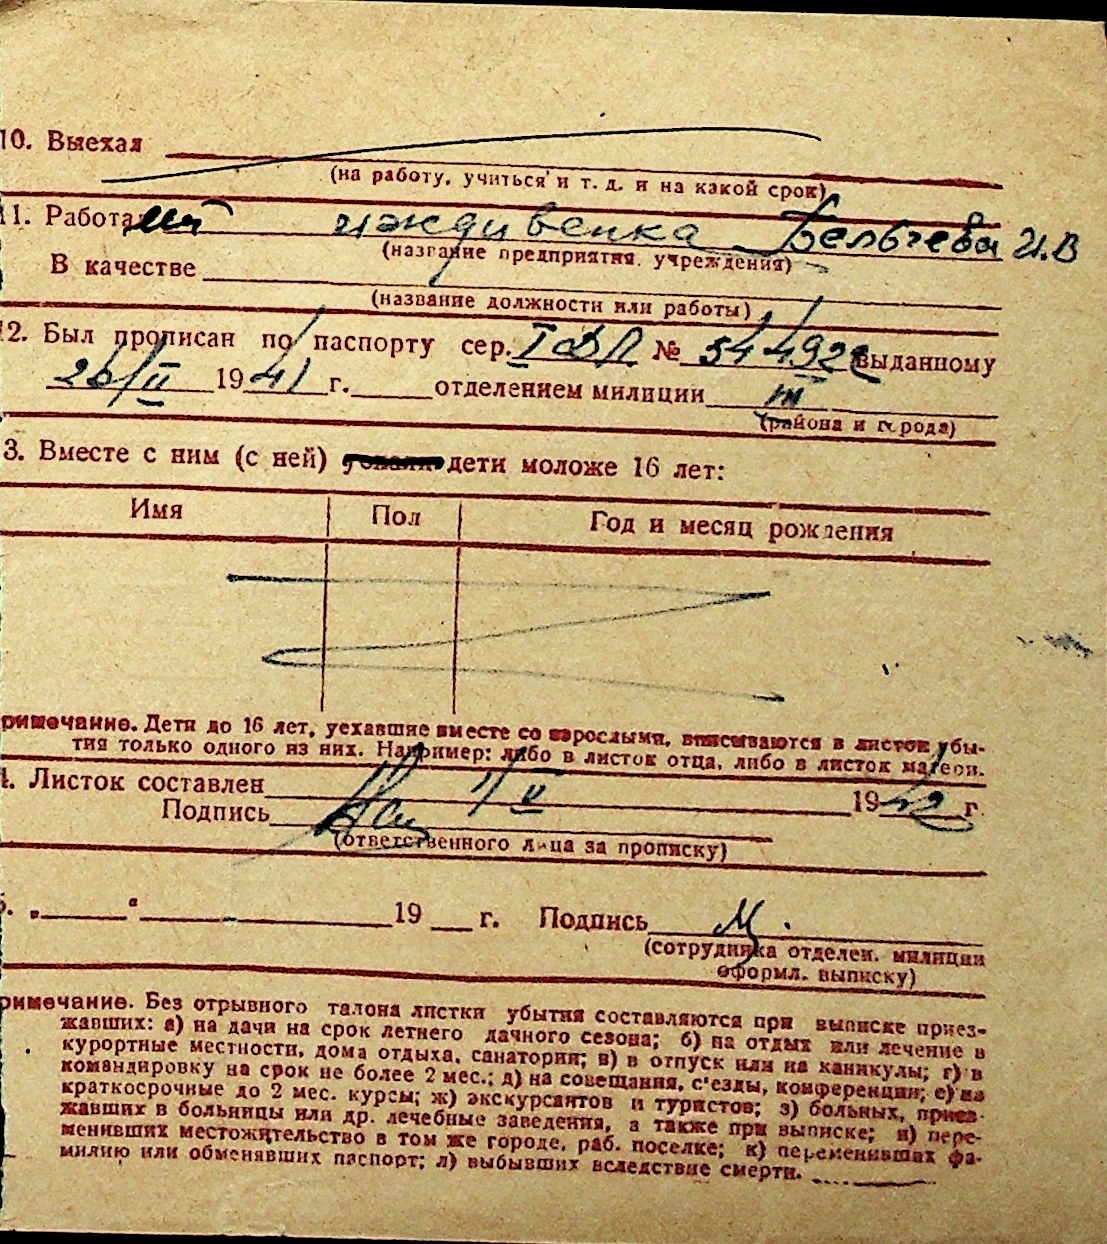 10. Выехал
(на работу, учиться и т. д. и на какой срок)
11. Работа иждивенка Бельчева И.В
(название предприятия, учреждения)
В качестве
(название должности или работы)
12. Был прописан по паспорту сер. № 544922 выданному
26/II 1941 г. отделением милиции III
(района и города)
3. Вместе с ним (с ней) дети моложе 16 лет:
Имя Пол Год и месяц рождения
римечание. Дети до 16 лет, уехавшие вместе со взрослыми, вписываются в листок убы-
тия только одного из них. Например: либо в листок отца, либо в листок матери.
4. Листок составлен 1/V 1942 г
Подпись
(ответственного лица за прописку)
5. „ “ 19 г. Подпись
(сотрудника отделен. милиции
оформл. выписку)
римечание. Без отрывного талона листки убытия составляются при выписке приез-
жавших: а) на дачи на срок летнего дачного сезона; б) на отдых или лечение в
курортные местности, дома отдыха, санатории; в) в отпуск или на каникулы; г) в
командировку на срок не более 2 мес.; д) на совещания, с'езды, конференции; е) на
краткосрочные до 2 мес. курсы; ж) экскурсантов и туристов; з) больных, приез-
жавших в больницы или др. лечебные заведения, а также при выписке; и) пере-
менивших местожительство в том же городе, раб. поселке; к) переменивших фа-
милию или обменявших паспорт; л) выбывших вследствие смерти.